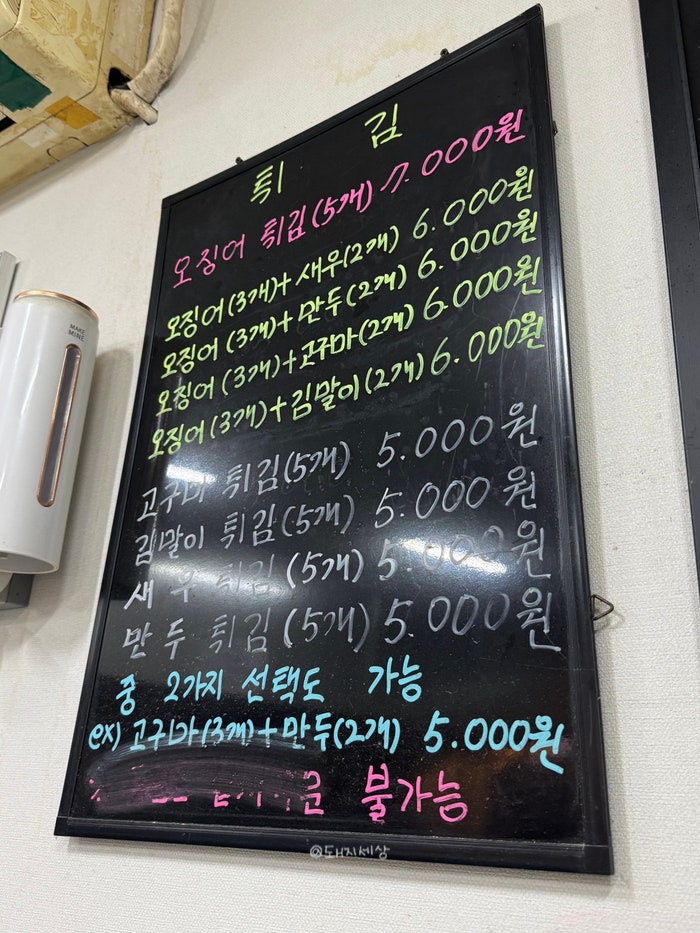 튀 김
오징어 튀김(5개) 7.000원
오징어(3개)+새우(2개) 6.000원
오징어(3개)+만두(2개) 6.000원
오징어(3개)+고구마(2개) 6.000원
오징어(3개)+김말이(2개) 6.000원
고구마 튀김(5개) 5.000원
김말이 튀김(5개) 5.000원
새우 튀김(5개) 5.000원
만두 튀김(5개) 5.000원
중 2가지 선택도 가능
ex) 고구마(3개)+만두(2개) 5.000원
불가능
MAKE
MINE
@돼지세상